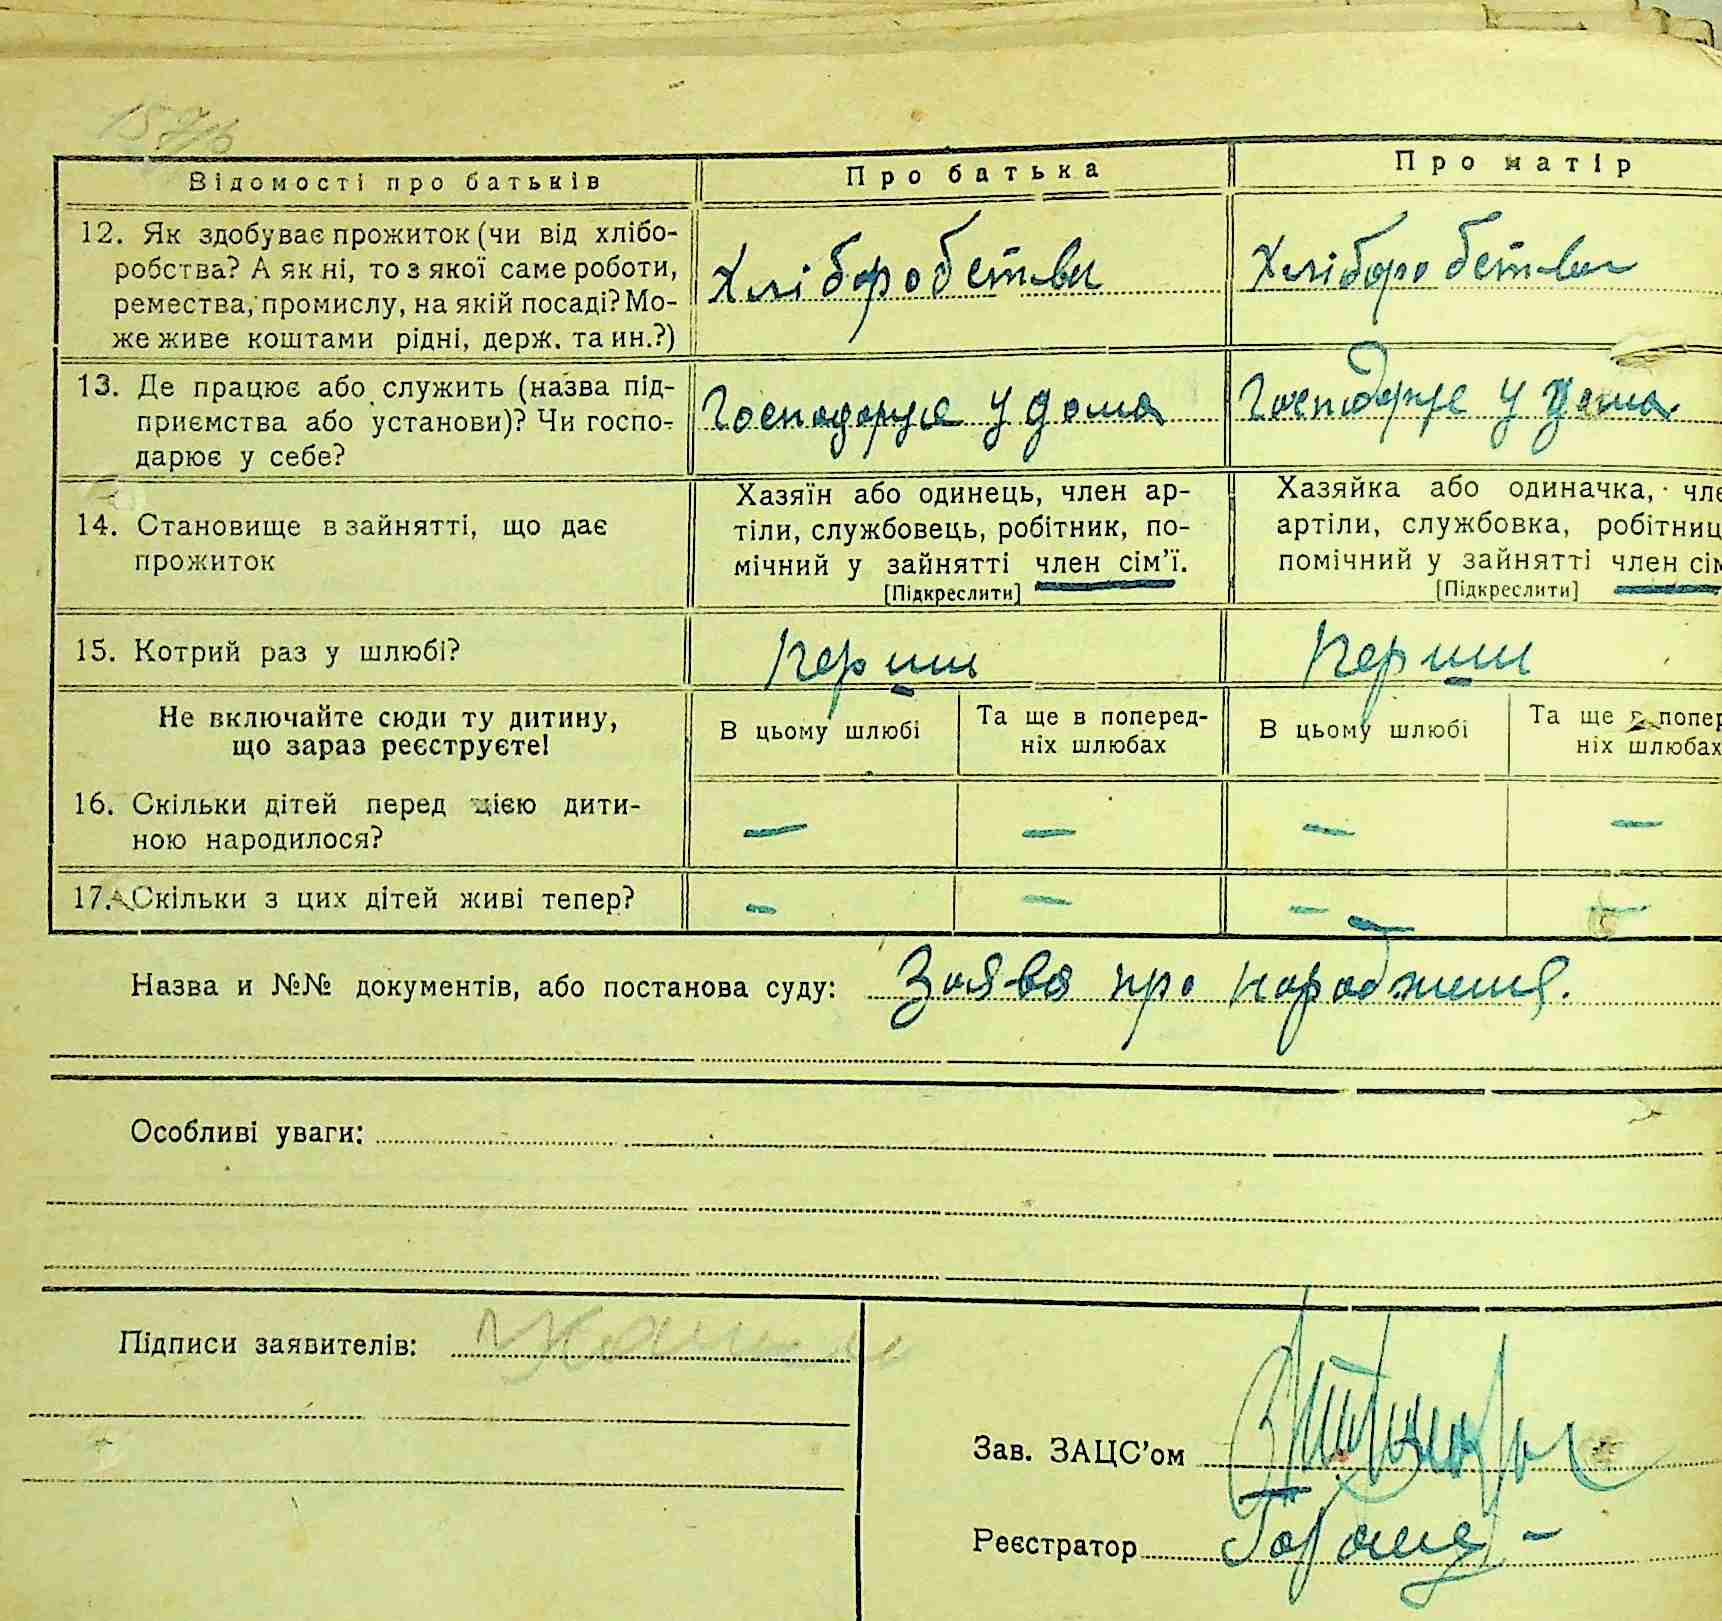 Відомості про батьків
Про батька
Про матір
12. Як здобуває прожиток (чи від хлібо-
робства? А як ні, то з якої саме роботи,
ремества, промислу, на якій посаді? Мо-
же живе коштами рідні, держ. та ин.?)
Хліборобства
Хліборобства
13. Де працює або служить (назва під-
приємства або установи)? Чи госпо-
дарює у себе?
Господарює у дома
Господарює у дома
14. Становище в зайнятті, що дає
прожиток
Хазяїн або одинець, член ар-
тіли, службовець, робітник, по-
мічний у зайнятті член сім'ї.
[Підкреслити]
Хазяйка або одиначка, чле
артіли, службовка, робітниц
помічний у зайнятті член сім
[Підкреслити]
15. Котрий раз у шлюбі?
Перши
Перши
Не включайте сюди ту дитину,
що зараз реєструєте!
В цьому шлюбі
Та ще в поперед-
ніх шлюбах
В цьому шлюбі
Та ще в попер
ніх шлюбах
16. Скільки дітей перед цією дити-
ною народилося?
— — — —
17. Скільки з цих дітей живі тепер?
— — — —
Назва и №№ документів, або постанова суду: Заява про народження.
Особливі уваги:
Підписи заявителів:
Зав. ЗАЦС'ом
Реєстратор